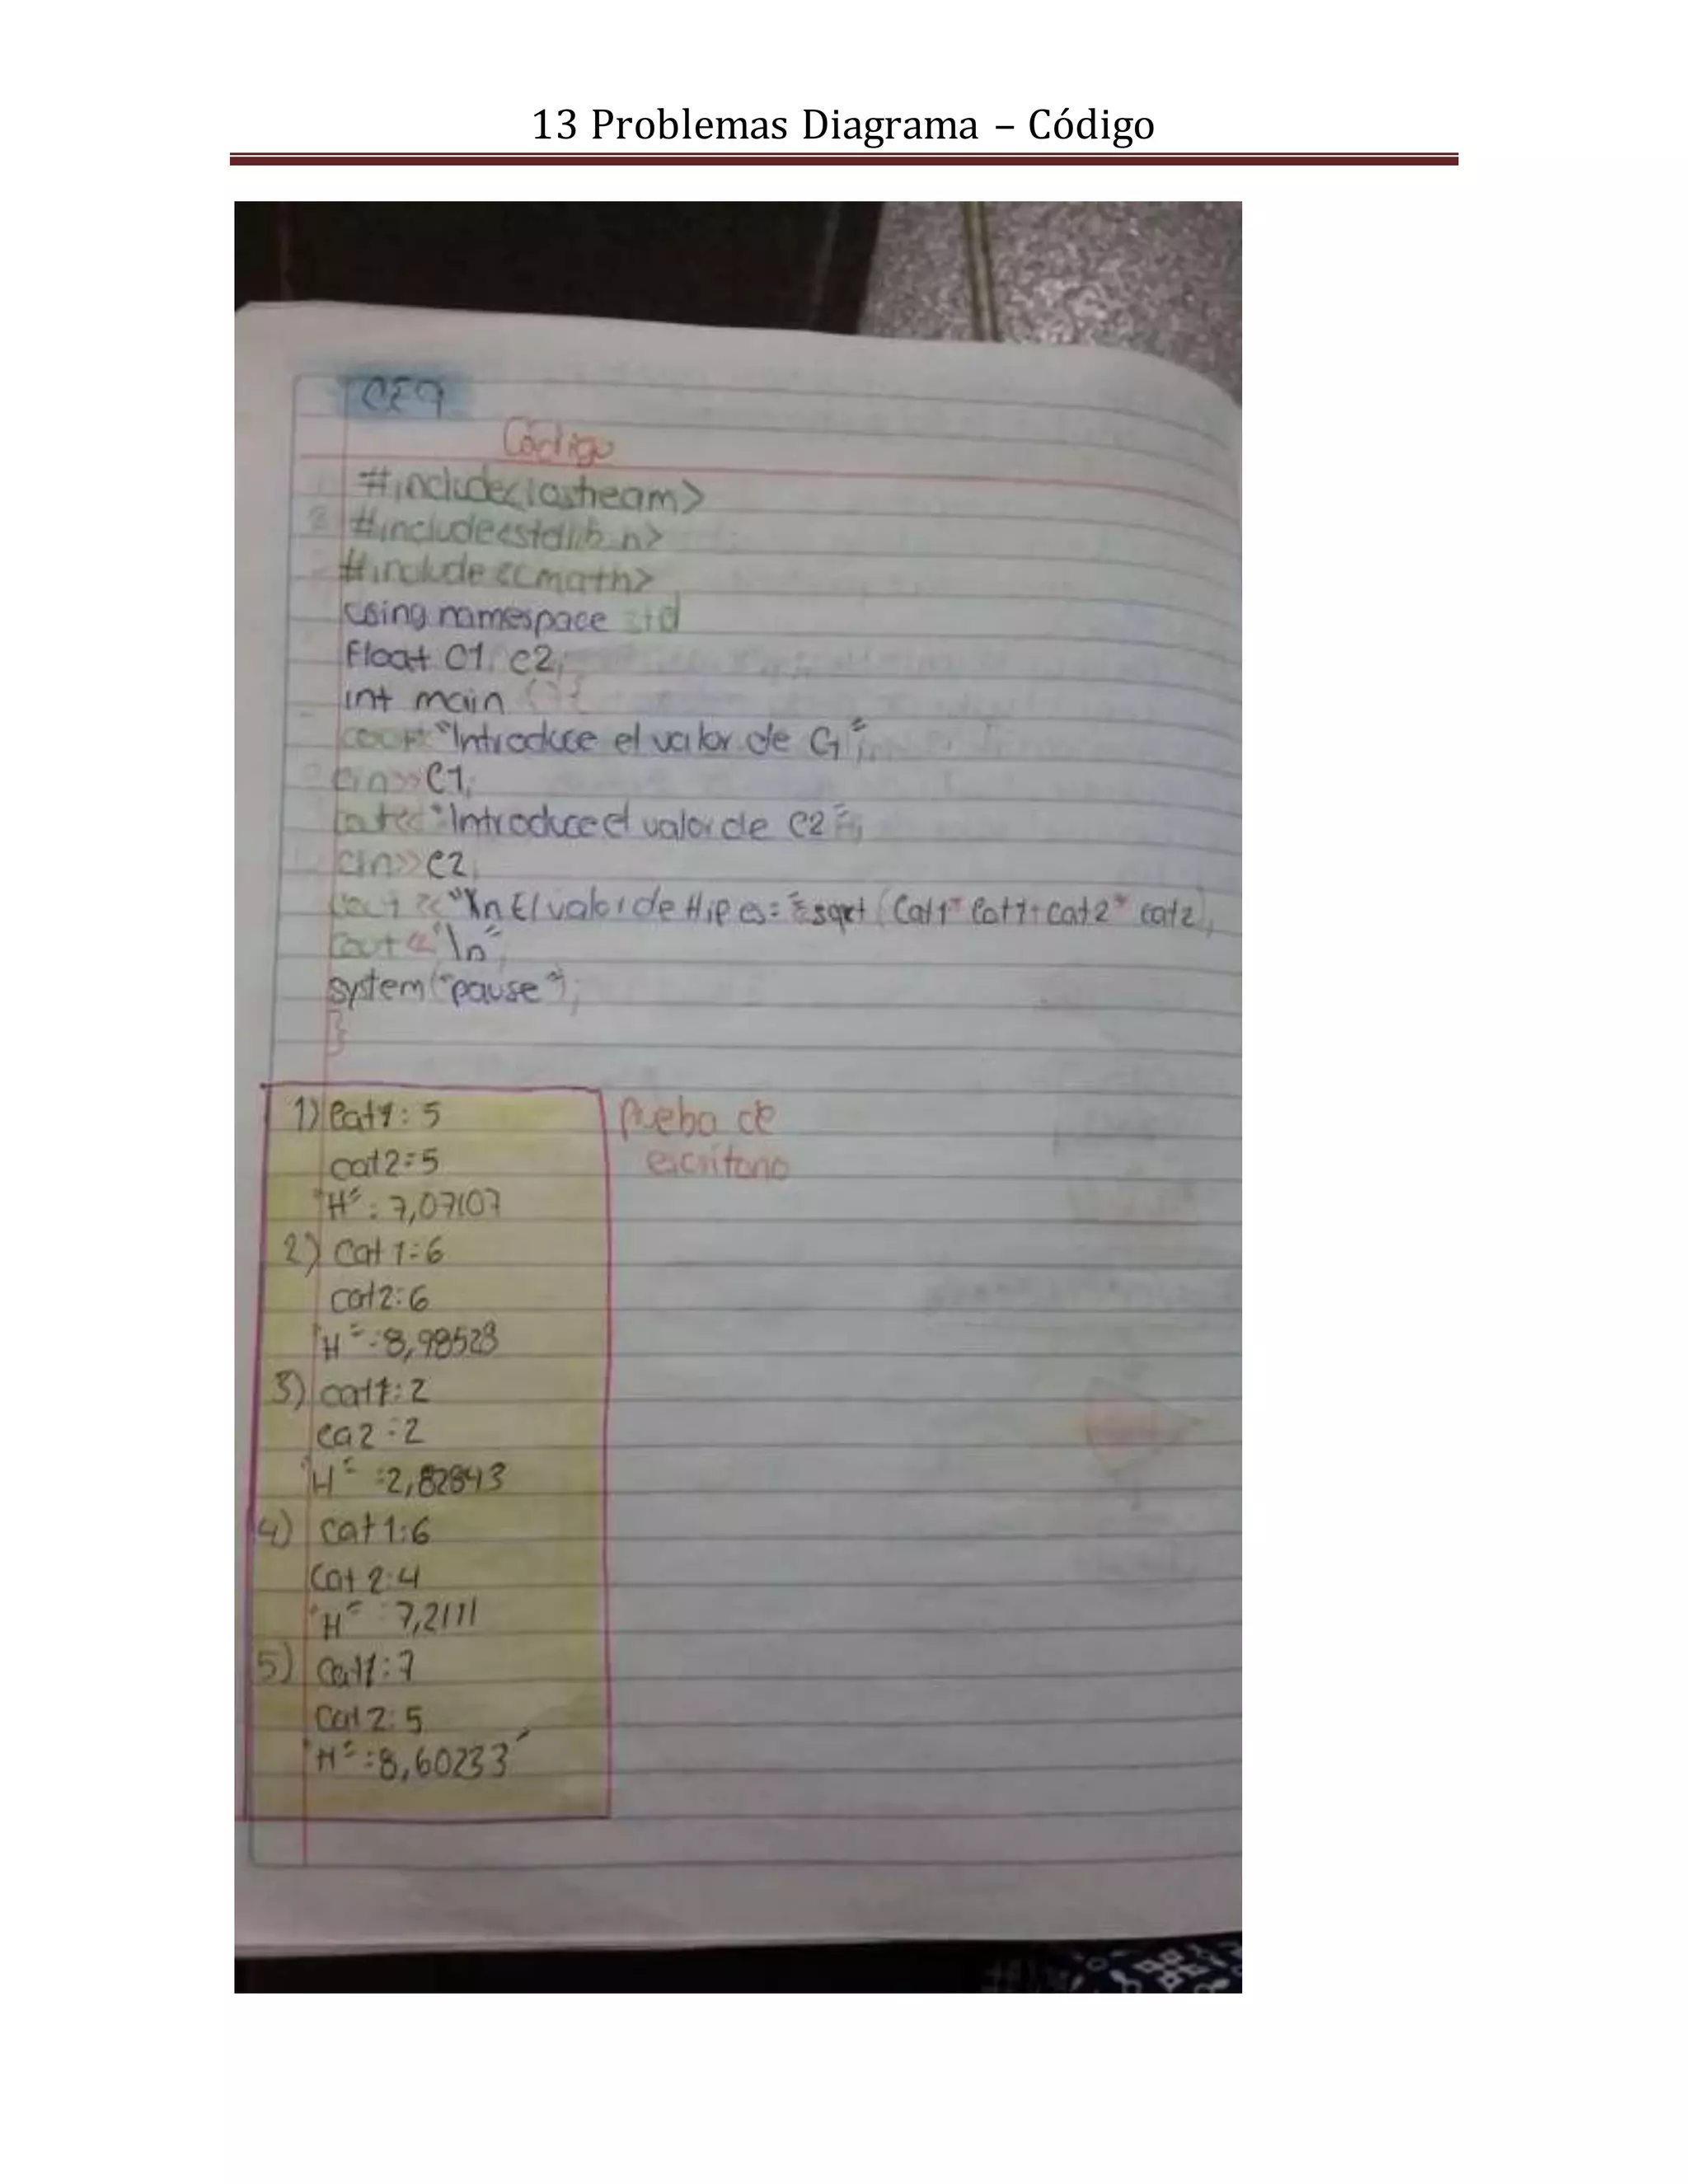 13 Problemas Diagrama – Código
CE9
Código
#include<iostream>
#include<stdlib.h>
#include<cmath>
using namespace std
Float C1, C2;
int main (){
cout<<"Introduce el valor de C1";
cin>>C1;
cout<<"Introduce el valor de C2";
cin>>C2;
cout<<"\n El valor de Hip es="<<sqrt(Cat1*Cat1+cat2*cat2);
cout<<"\n";
system("pause");
}
1) Cat1: 5
Prueba de
cat2=5
escritorio
"H": 7,07107
2) Cat 1:6
cat2:6
"H" :8,98528
3) cat1:2
ca2:2
"H" :2,82843
4) cat 1:6
Cat 2:4
"H" :7,2111
5) Cat1:7
Cat 2:5
"H":8,60233